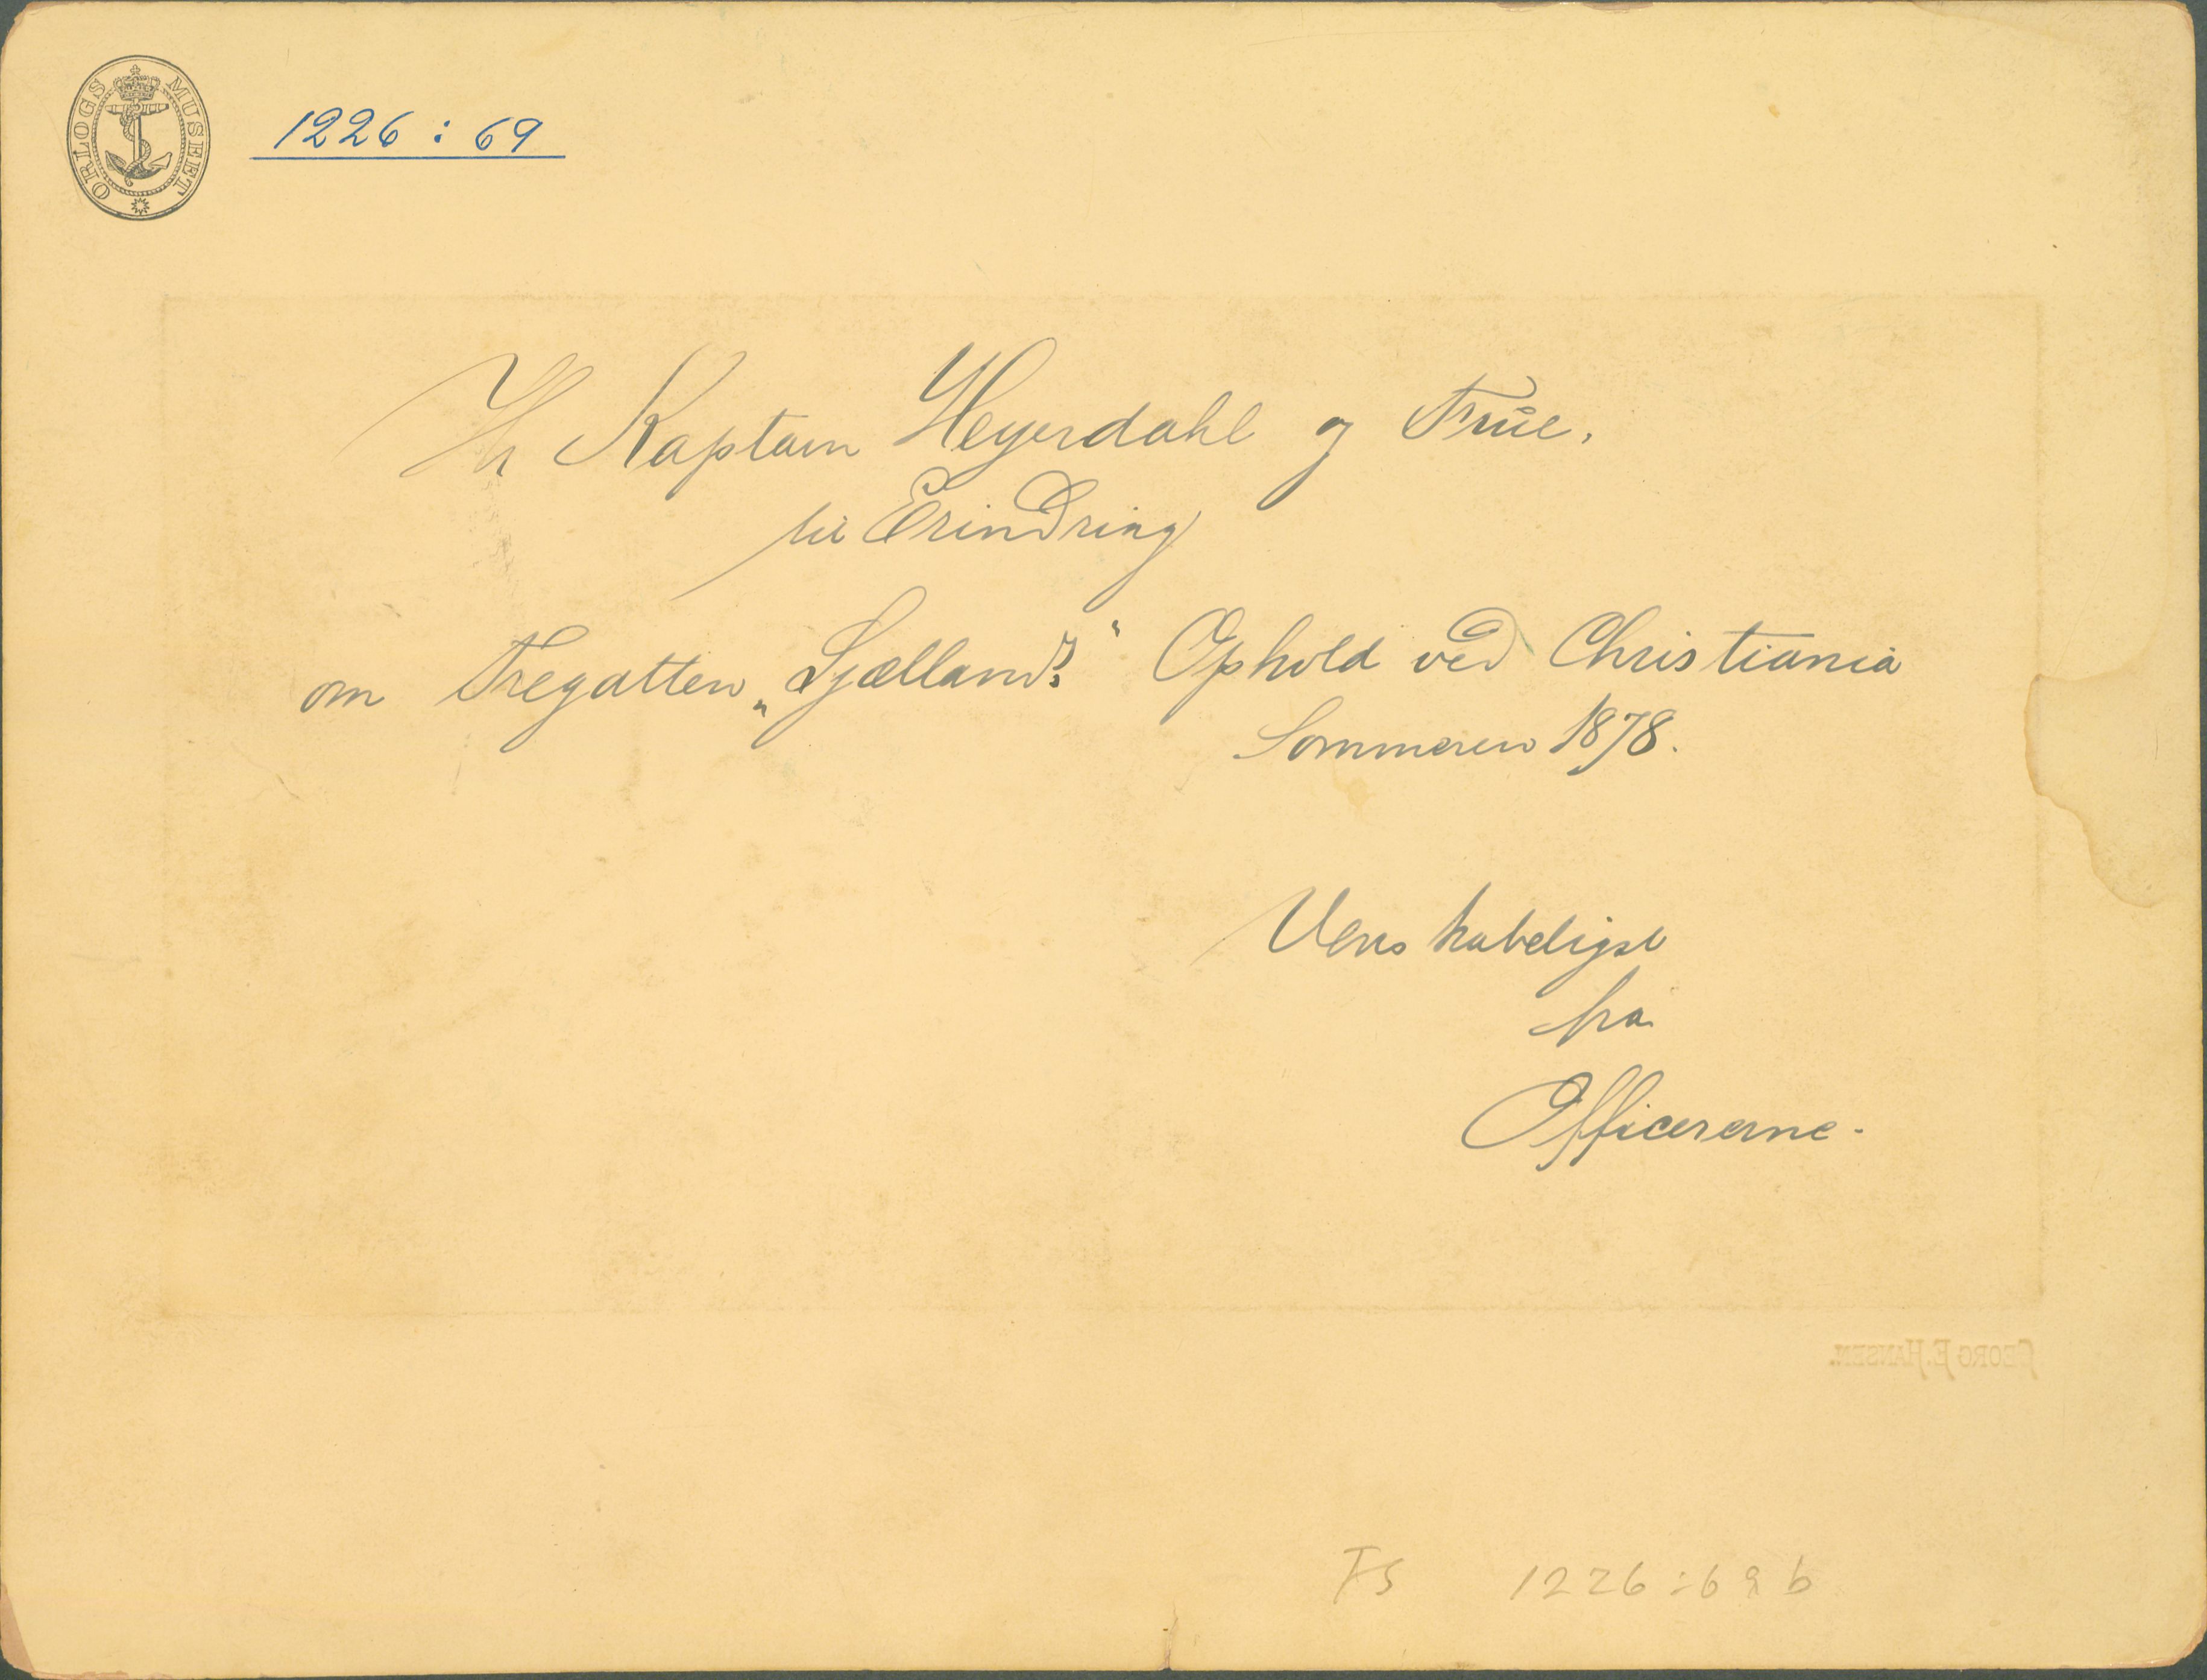 ORLOGS MUSEET
1226 : 69
Hr Kaptain Heyerdahl og Frue.
til Erindring
om Fregatten „Sjælland's“ Ophold ved Christiania
Sommeren 1878.
Venskabeligst
fra
Officererne.
GEORG E. HANSEN.
FS 1226:69 b